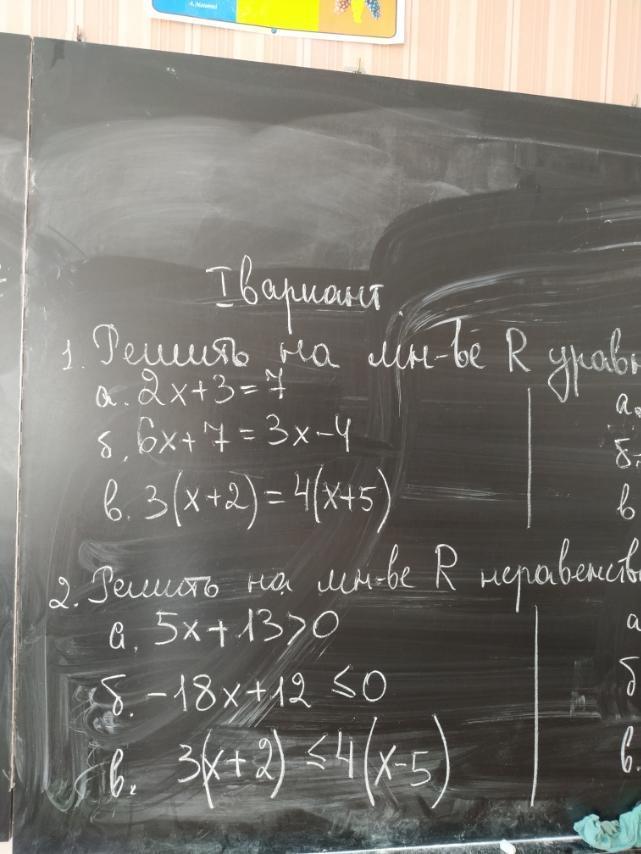 I вариант
1. Решить на мн-ве R уравн
а. 2x+3=7
б. 6x+7=3x-4
в. 3(x+2)=4(x+5)
2. Решить на мн-ве R неравенств
а. 5x+13>0
б. -18x+12 ≤0
в. 3(x+2) ≤4(x-5)
а.
б.
в
а
б
в.